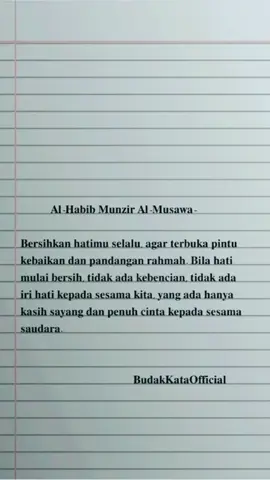 Al-Habib Munzir Al-Musawa-
Bersihkan hatimu selalu, agar terbuka pintu
kebaikan dan pandangan rahmah. Bila hati
mulai bersih, tidak ada kebencian, tidak ada
iri hati kepada sesama kita, yang ada hanya
kasih sayang dan penuh cinta kepada sesama
saudara.
BudakKataOfficial